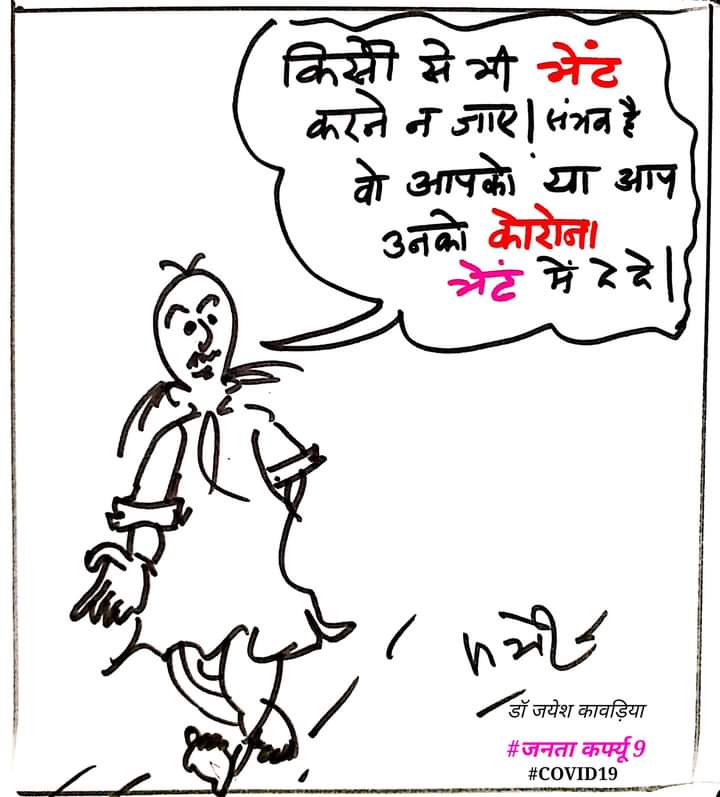 किसी से भी भेंट
करने न जाए| संभव है
वो आपको या आप
उनको कोरोना
भेटं में दे दे|
डॉ जयेश कावड़िया
#जनता कर्फ्यू 9
#COVID19